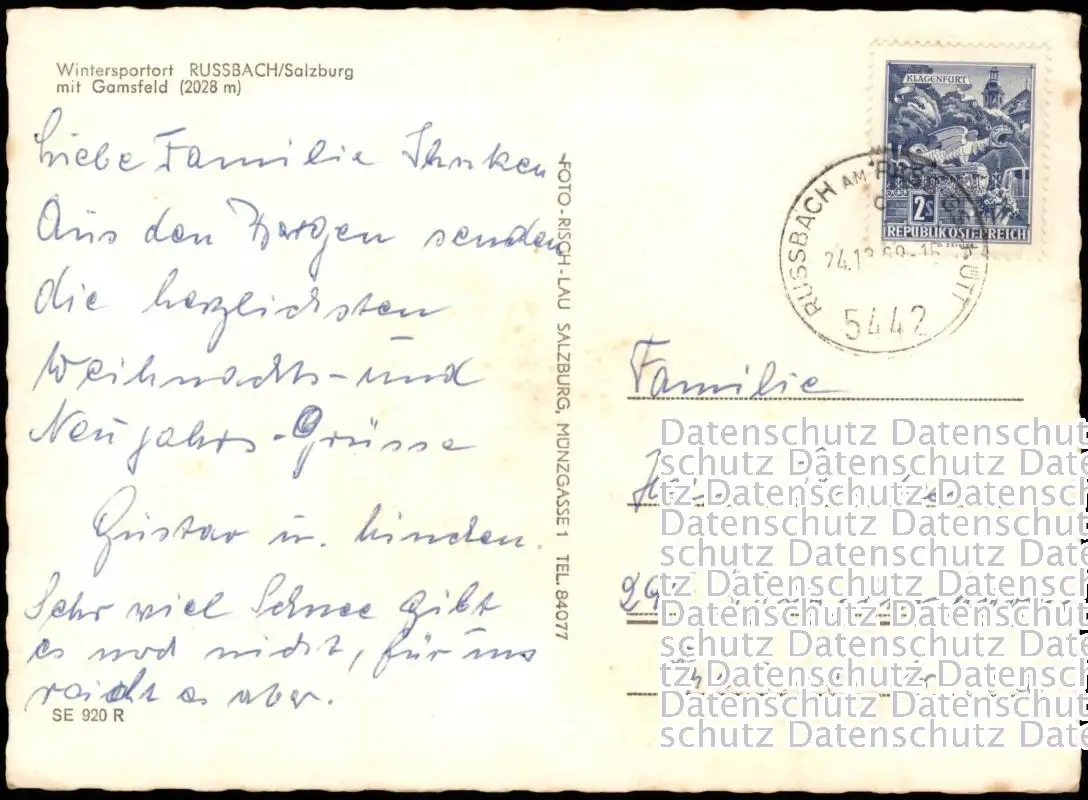 Wintersportort RUSSBACH/Salzburg
mit Gamsfeld (2028 m)
Liebe Familie
Aus den Bergen senden
die herzlichsten
Weihnachts- und
Neujahrs-Grüsse
Gustav u.
Sehr viel Schnee gibt
es noch nicht, für uns
reicht es aber.
SE 920 R
FOTO-RISCH-LAU SALZBURG, MÜNZGASSE 1 TEL. 84077
KLAGENFURT
2S
REPUBLIK ÖSTERREICH
RUSSBACH AM
5442
Familie
Datenschutz Datenschut
schutz Datenschutz Dat
tz Datenschutz Datensc
Datenschutz Datenschut
schutz Datenschutz Dat
tz Datenschutz Datensc
Datenschutz Datenschut
schutz Datenschutz Dat
tz Datenschutz Datensc
Datenschutz Datenschut
schutz Datenschutz Dat